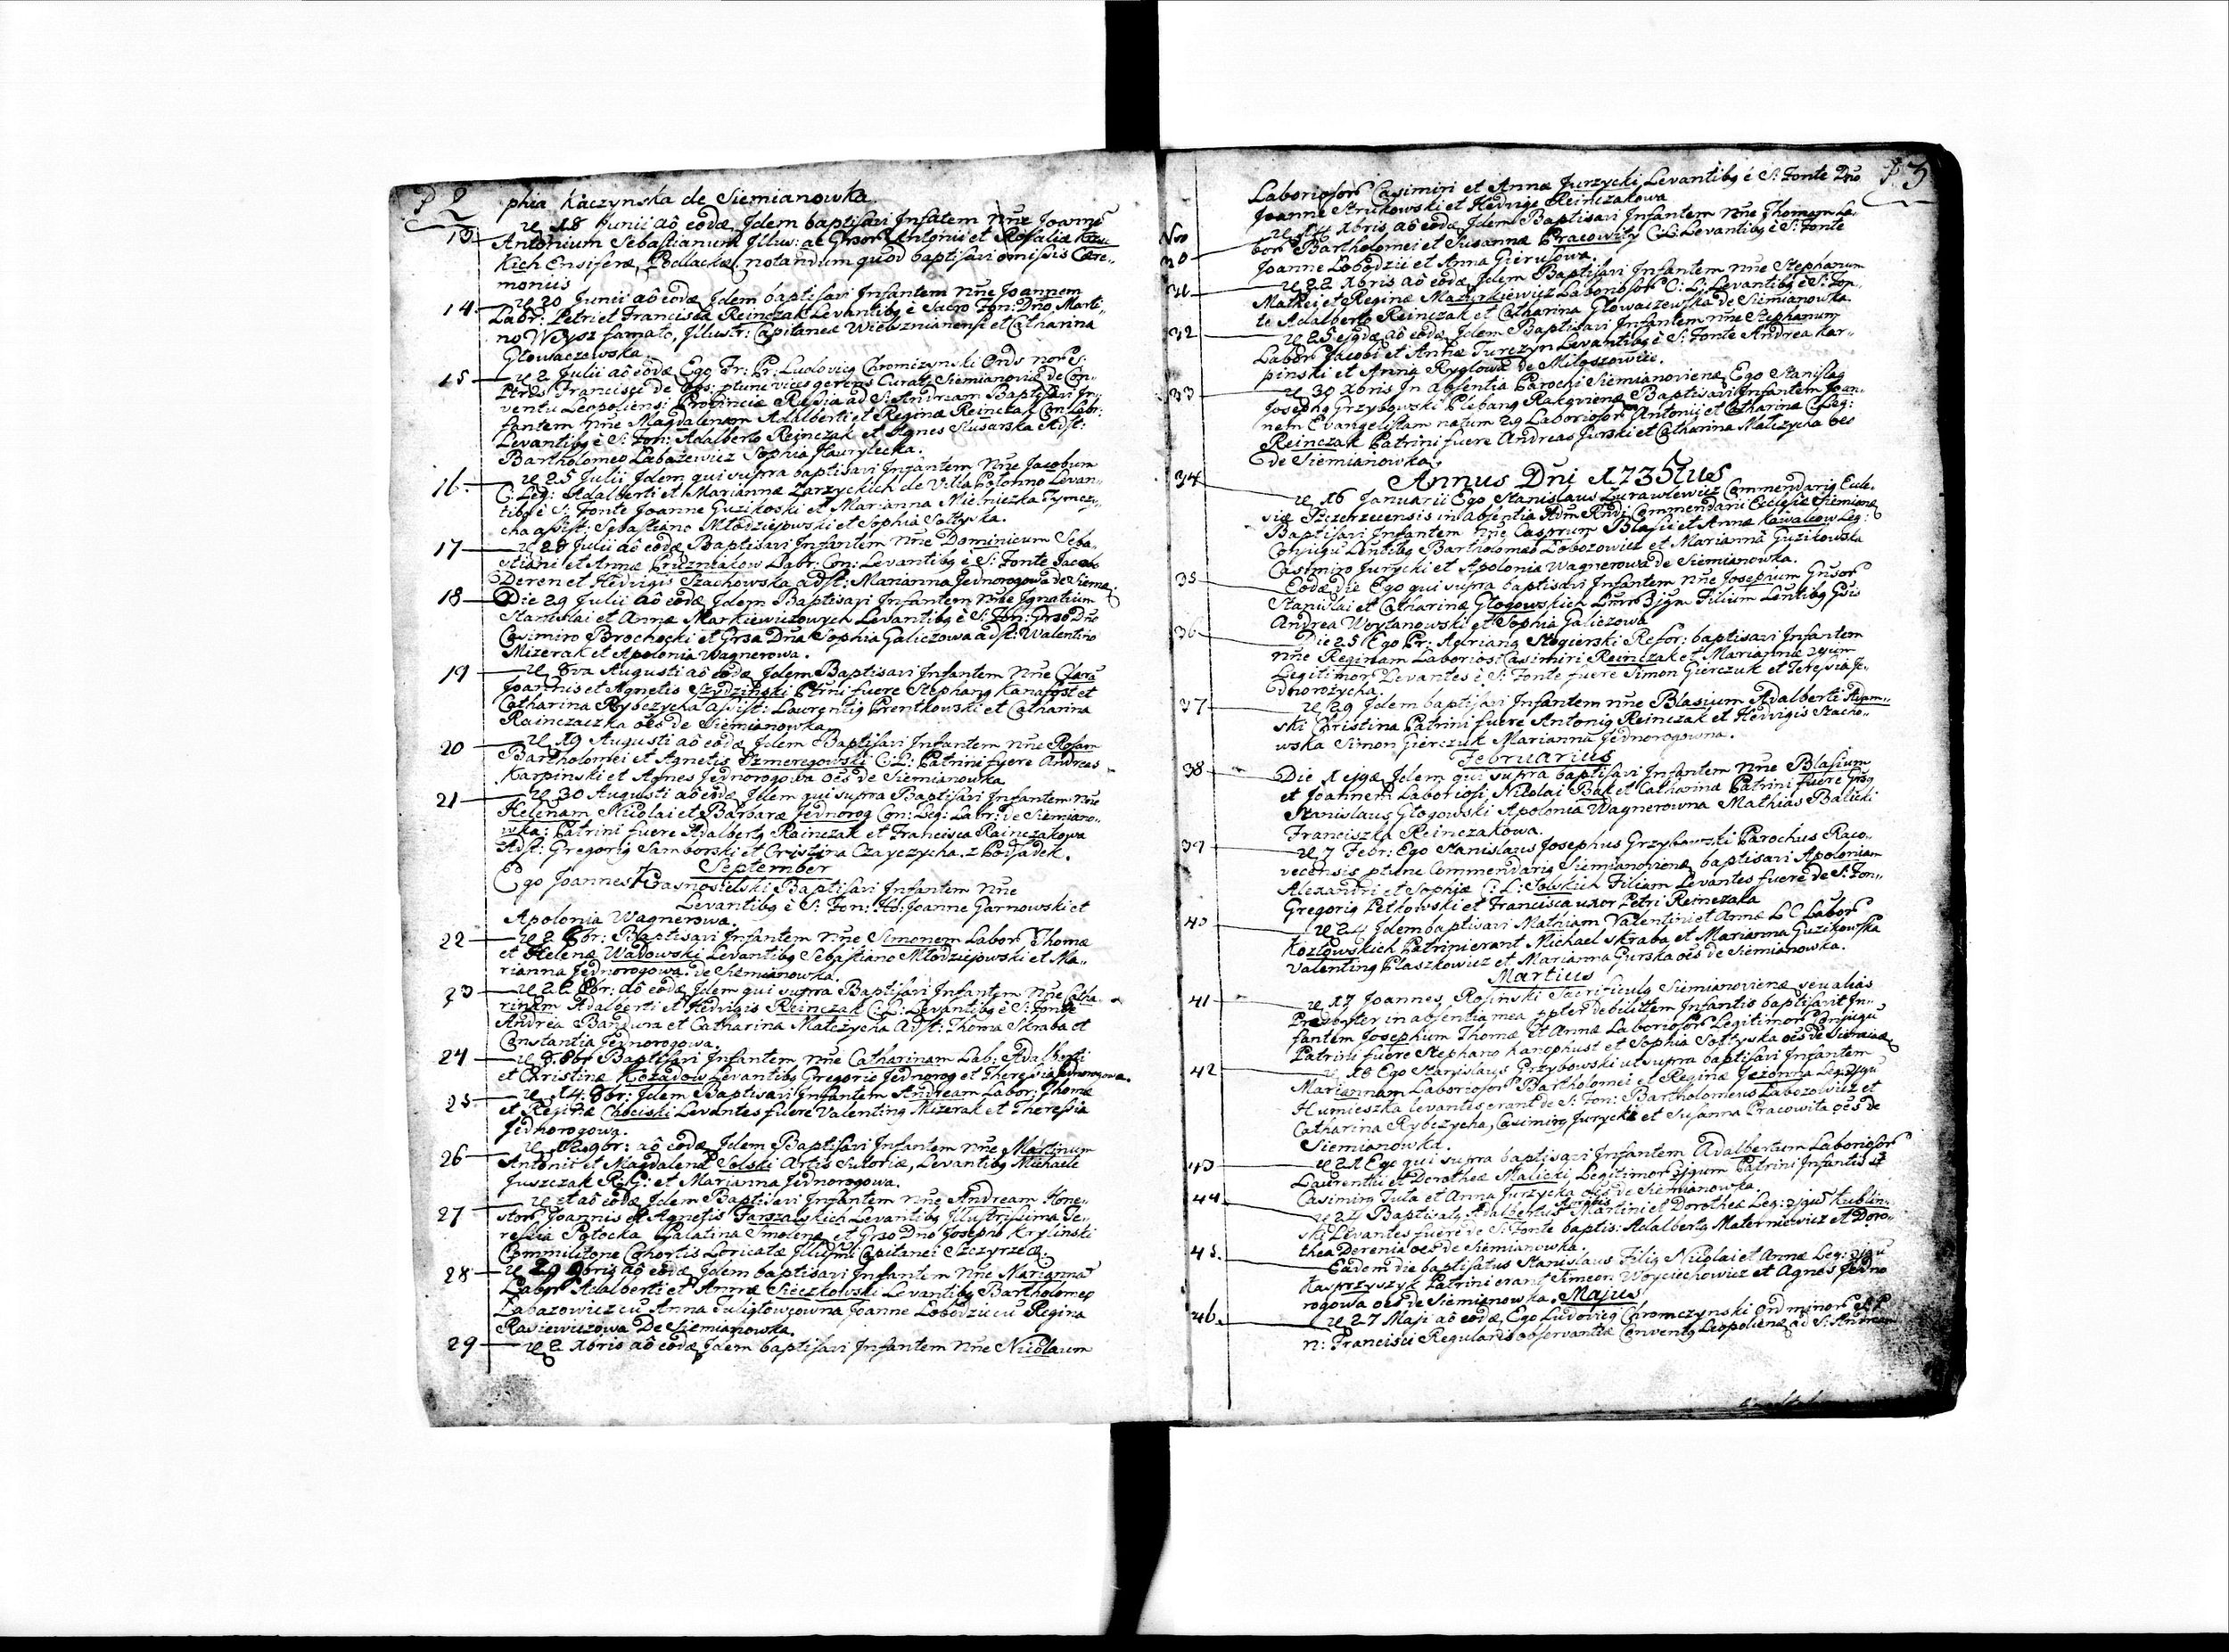 P 2
phia Kaczynska de Siemianowka
13 18 Junii aô eodē Idem baptisavi Infātem nñe Joannē
Antonium Sebastianum Illus: ac Grsor Antonii et Rosaliæ
kich Ensiferæ Podlackæ notandum quod baptisavi omissis Cære-
moniis
14 20 Junii aô eodē Idem baptisavi Infantem nñe Joannem
Labr: Petri et Francisca Reinczak Levantibg è Sacro Fon: Dño Marti-
no Woysz famato, Illustr: Capitanea Wielsznianensi et Catharina
Głowaczewska
15 2 Julii aô eodē Ego Fr: Pr: Ludovicg Chromczynski Ords nor S:
Ptris Francisci de Obs: ptunc vices gerens Curati Siemianovien de Con-
ventu Leopoliensi Provinciæ Russiæ ad S: Andream Baptisavi In-
fantem nñe Magdalenam Adalberti et Reginæ Reinczak Con: Labr:
Levantibg è S: Fon: Adalberto Reinczak et Agnes Slusarska Adst:
Bartholomeo Labazewicz Sophia Hawrylecka.
16. 25 Julii Idem qui supra baptisavi Infantem nñe Jacobum
C: Leg: Adalberti et Mariannæ Zarzyckich de Villa Polonno Levan-
tibg è S: Fonte Joanne Guzikoski et Marianna Mielniczka Tymczy-
cha assist: Sebastiano Młodziejowski et Sophia Sołtyska.
17 28 Julii aô eodē Baptisavi Infantem nñe Dominicum Seba-
stiani et Annæ Pruzniakow Labr: Con: Levantibg è S: Fonte Jacobo
Deren et Hedvigis Szachowska adst: Marianna Jednorogowa de Siemia:
18 Die 29 Julii aô eodē Idem Baptisavi Infantem nñe Ignatium
Stanislai et Annæ Markiewiczowych Levantibg è S: Fon: Grso Dño
Casimiro Brochocki et Grsa Dña Sophia Galiczowa adst: Valentino
Mizerak et Apolonia Wagnerowa.
19 8va Augusti aô eodē Idem Baptisavi Infantem nñe Clarā
Joannis et Agnetis Szydzinski Ptrini fuere Stephang Kanafost et
Catharina Rybczycha assist: Laurentig Prentkowski et Catharina
Rainczaczka oēs de Siemianowka
20 19 Augusti aô eodē Idem Baptisavi Infantem nñe Rosam
Bartholomei et Agnetis Szmeregowski C: L: Patrini fuere Andreas
Karpinski et Agnes Jednorogowa oēs de Siemianowka
21 30 Augusti aô eodē Idem qui supra Baptisavi Infantem nñe
Helenam Nicolai et Barbaræ Jednorog Con: Leg: Labr: de Siemiano-
wka: Patrini fuere Adalbertg Rainczak et Francisca Rainczakowa
Adst: Gregorig Samborski et Cristina Czayczycha z Posadek.
September
Ego Joannes Krasnosielski Baptisavi Infantem nñe
Levantibg è S: Fon: Joanne Garnowski et
Apolonia Wagnerowa.
22 2 8br: Baptisavi Infantem nñe Simonem Labor Thomæ
et Helenæ Wadowski Levantibg Sebastiano Młodziejowski et Ma-
rianna Jednorogowa de Siemianowka.
23 21 8br: aô eodē Idem qui supra Baptisavi Infantem nñe Catha-
rinam Adalberti et Hedvigis Reinczak C: L: Levantibg è S: Fonte
Andrea Bandura et Catharina Małczycha Adst: Thoma Skraba et
Constantia Jednorogowa.
24 8 8br Baptisavi Infantem nñe Catharinam Lab: Adalberti
et Christinæ Kozadow Levantibg Gregorio Jednorog et Theresia Jednorogowa.
25 14 8br: Idem Baptisavi Infantem Andream Labor: Thomæ
et Reginæ Chociski Levantes fuere Valenting Mizerak et Theresia
Jednorogowa.
26 12 9br: aô eodē Idem Baptisavi Infantem nñe Martinum
Antonii et Magdalenæ Solski Artis Sutoriæ, Levantibg Michaele
Juszczak et Marianna Jednorogowa.
27 et aô eodē Idem Baptisavi Infantem nñe Andream Hone-
stor Joannis et Agnetis Farszalskich Levantibg Illustrissima Te-
ressia Potocka Palatina Smolenæ et Grso Dño Josepho Krylinski
Commilitone Cohortis Loricatæ Illustmi Capitanei Szczyrzecæ.
28 29 9bris aô eodē Idem baptisavi Infantem nñe Mariannā
Labor Adalberti et Annæ Sieczkowski Levantibg Bartholomeo
Labazowicz cū Anna Tuligłowcowna Joanne Lobodzic cū Regina
Rasiewiczowa De Siemianowka.
29 2 Xbris aô eodē Idem baptisavi Infantem nñe Nicolaum
P. 3
Laboriosor Casimiri et Annæ Jurzycki Levantibg è S: Fonte Dño
Joanne Strukowski et Hedvige Reinczakowa
Nro
30 14 Xbris aô eodē Idem Baptisavi Infantem nñe Thomam La-
bor Bartholomei et Susannæ Pracowity C: L: Levantibg è S: Fonte
Joanne Lobodzii et Anna Gierusowa.
31 22 Xbris aô eodē Idem Baptisavi Infantem nñe Stephanum
Mathei et Reginæ Mazurkiewicz Laboriosor C: L: Levantibg è S: Fon-
te Adalberto Reinczak et Catharina Głowaczewska de Siemianowka
32 25 ejgdē aô eodē Idem Baptisavi Infantem nñe Stephanum
Labor Jacobi et Annæ Turczyn Levantibg è S: Fonte Andrea Kar-
pinski et Anna Ryglowa de Miłoszowice.
33 30 Xbris In absentia Parochi Siemianovienæ, Ego Stanislag
Josephg Grzybowski Plebang Rakovienæ Baptisavi Infantem Joan-
nem Evangelistam natum 29 Laboriosor Antonij et Catharinæ C: Leg:
Reinczak Patrini fuere Andreas Jurski et Catharina Małczycha oēs
de Siemianowka.
Annus Dñi 1735tus
34 16 Januarii Ego Stanislaus Zurawlewicz Commendarig Eccle-
siæ Szczerzecensis in absentia Adm Rndi Commendarii Ecclesiæ Siemianæ
Baptisavi Infantem nñe Casprum Blasii et Annæ Kowalcow Leg:
Conjugū Lēntibg Bartholomeo Lobozowicz et Marianna Guzikowska
Casimiro Jurycki et Apolonia Wagnerowa de Siemianowka.
35 Eodē die Ego qui supra baptisavi Infantem nñe Josephum Grsor
Stanislai et Catharinæ Głogowskich Filium Lentibg Gsis
Andrea Woyzanowski et Sophia Galiczowa
36 Die 25 Ego Pr: Adriang Stogierski Refor: baptisavi Infantem
nñe Reginam Laboriosi Casimiri Reinczak et Mariannæ
Legitimor Levantes è S: Fonte fuere Simon Gierczuk et Teresia Je-
dnorozycha.
37 29 Idem baptisavi Infantem nñe Blasium Adalberti Adam-
ski Christina Patrini fuere Antonig Reinczak et Hedvigis Szacho-
wska Simon Gierczuk Marianna Jednorogowna.
Februarius
38 Die 1 ejgē Idem qui supra baptisavi Infantem nñe Blasium
et Joannem Laboriosi Nicolai Bak et Catharinæ Patrini fuere Grosg
Stanislaus Głogowski Apolonia Wagnerowna Mathias Balicki
Franciszka Reinczakowa.
39 7 Febr: Ego Stanislaus Josephus Grzybowski Parochus Raco-
vecensis ptunc Commendarig Siemianovienæ baptisavi Apoloniam
Alexandri et Sophiæ C: L: Solskich Filiam Levantes fuere de S: Fon-
Gregorig Petkowski et Francisca uxor Petri Reinczaka
40 24 Idem baptisavi Mathiam Valentini et Annæ L C Labor
Kozłowskich Patrini erant Michael Skraba et Marianna Guzikowska
Valenting Ptaszkowicz et Marianna Gurska oēs de Siemianowka.
Martius
41 17 Joannes Rosinski Sacrificulg Siemianovienæ seu alias
Præsbyter in absentia mea ppter debilitem Infantis baptisavit In-
fantem Josephum Thomæ et Annæ Laboriosor Legitimor Conjugū
Patrini fuere Stephano Kanephust et Sophia Sołtyska oēs de Siemianæ
42 18 Ego Stanislaus Grzybowski ut supra baptisavi Infantem
Mariannam Laboriosor Bartholomei et Reginæ Jezonna Leg:
Humieszka levantes erant de S: Fon: Bartholomeus Labozowicz et
Catharina Rybczycha, Casimirg Jurycki et Susanna Pracowita oēs de
Siemianowka.
43 21 Ego qui supra baptisavi Infantem Adalbertum Laboriosor
Laurentii et Dorotheæ Malicki Legitimor Patrini Infantis
Casimirg Tuta et Anna Jurzycka oēs de Siemianowka
44 24 Baptisatg Adalbertus Martini et Dorotheæ Leg: Kublin-
ski Levantes fuere de S: Fonte baptis: Adalbertg Materniewicz et Doro-
thea Derenia oēs de Siemianowka.
45. Eadem die baptisatus Stanislaus Filig Nicolai et Annæ Leg:
Kasprzyszyk Patrini erant Simeon Woyciechowicz et Agnes Jedno
rogowa oēs de Siemianowka. Majus
46. 27 Maji aô eodē, Ego Ludovicg Chromczynski Ord minor S P
n: Francisci Regularis observantiæ Conventg Leopolienæ ad S: Andream